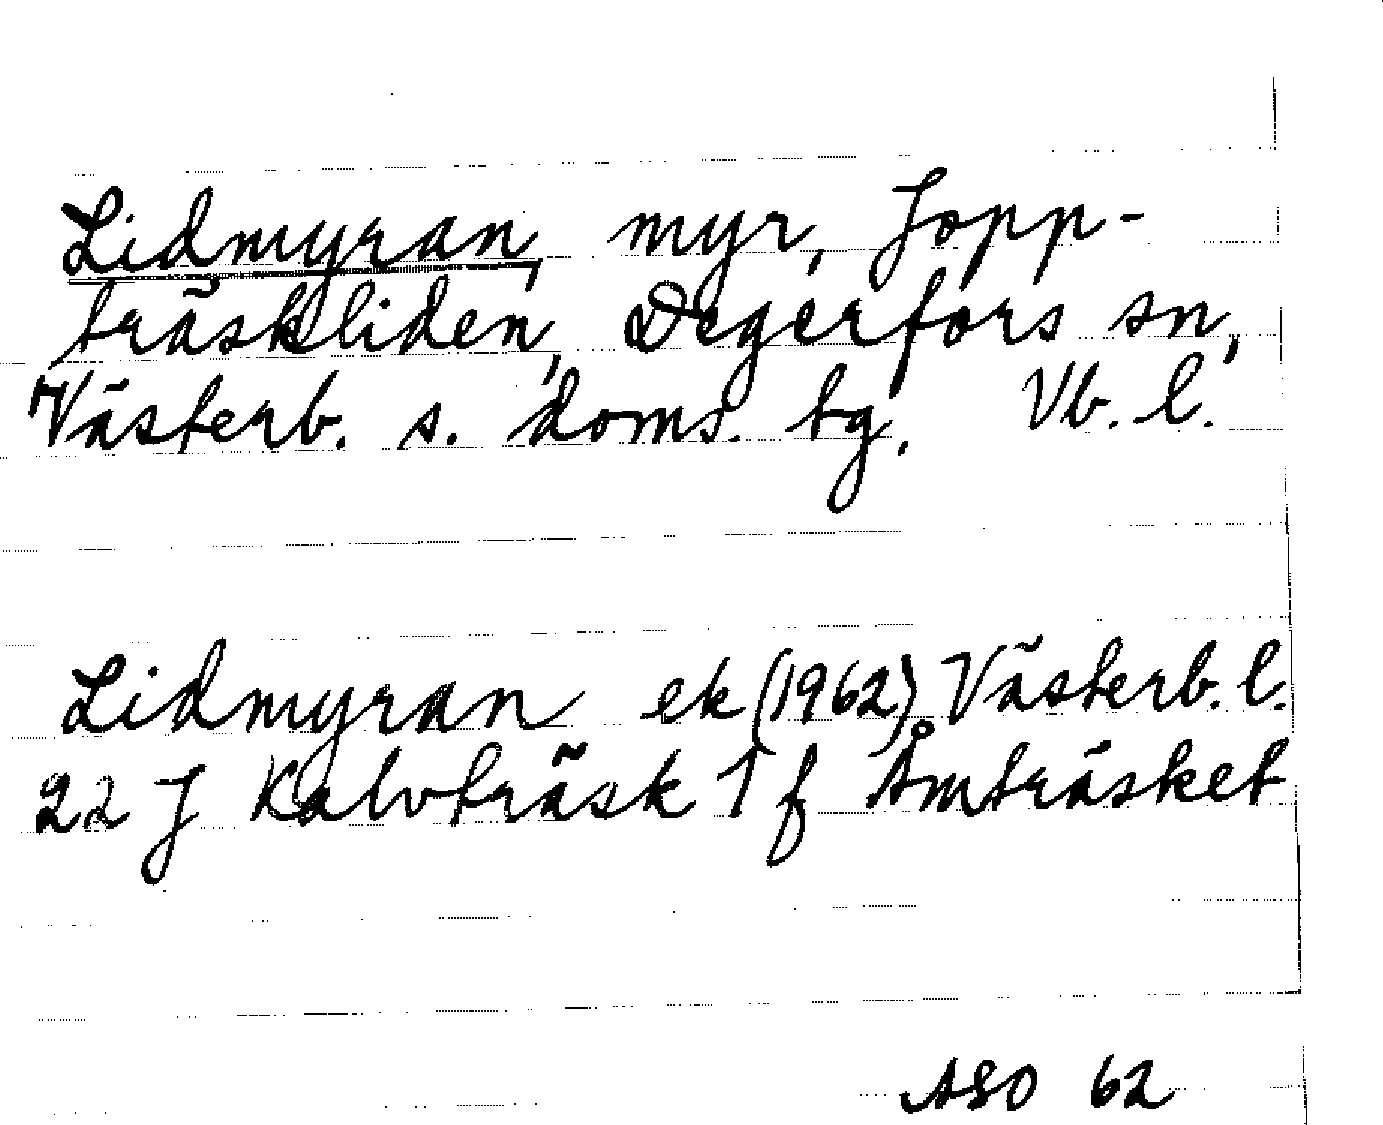 Lidmyran, myr, Jopp-
träskliden, Degerfors sn,
Västerb. s. doms. tg. Vb. l.
Lidmyran ek (1962) Västerb. l.
22 J Kalvträsk 1 f Åmträsket
ASO 62